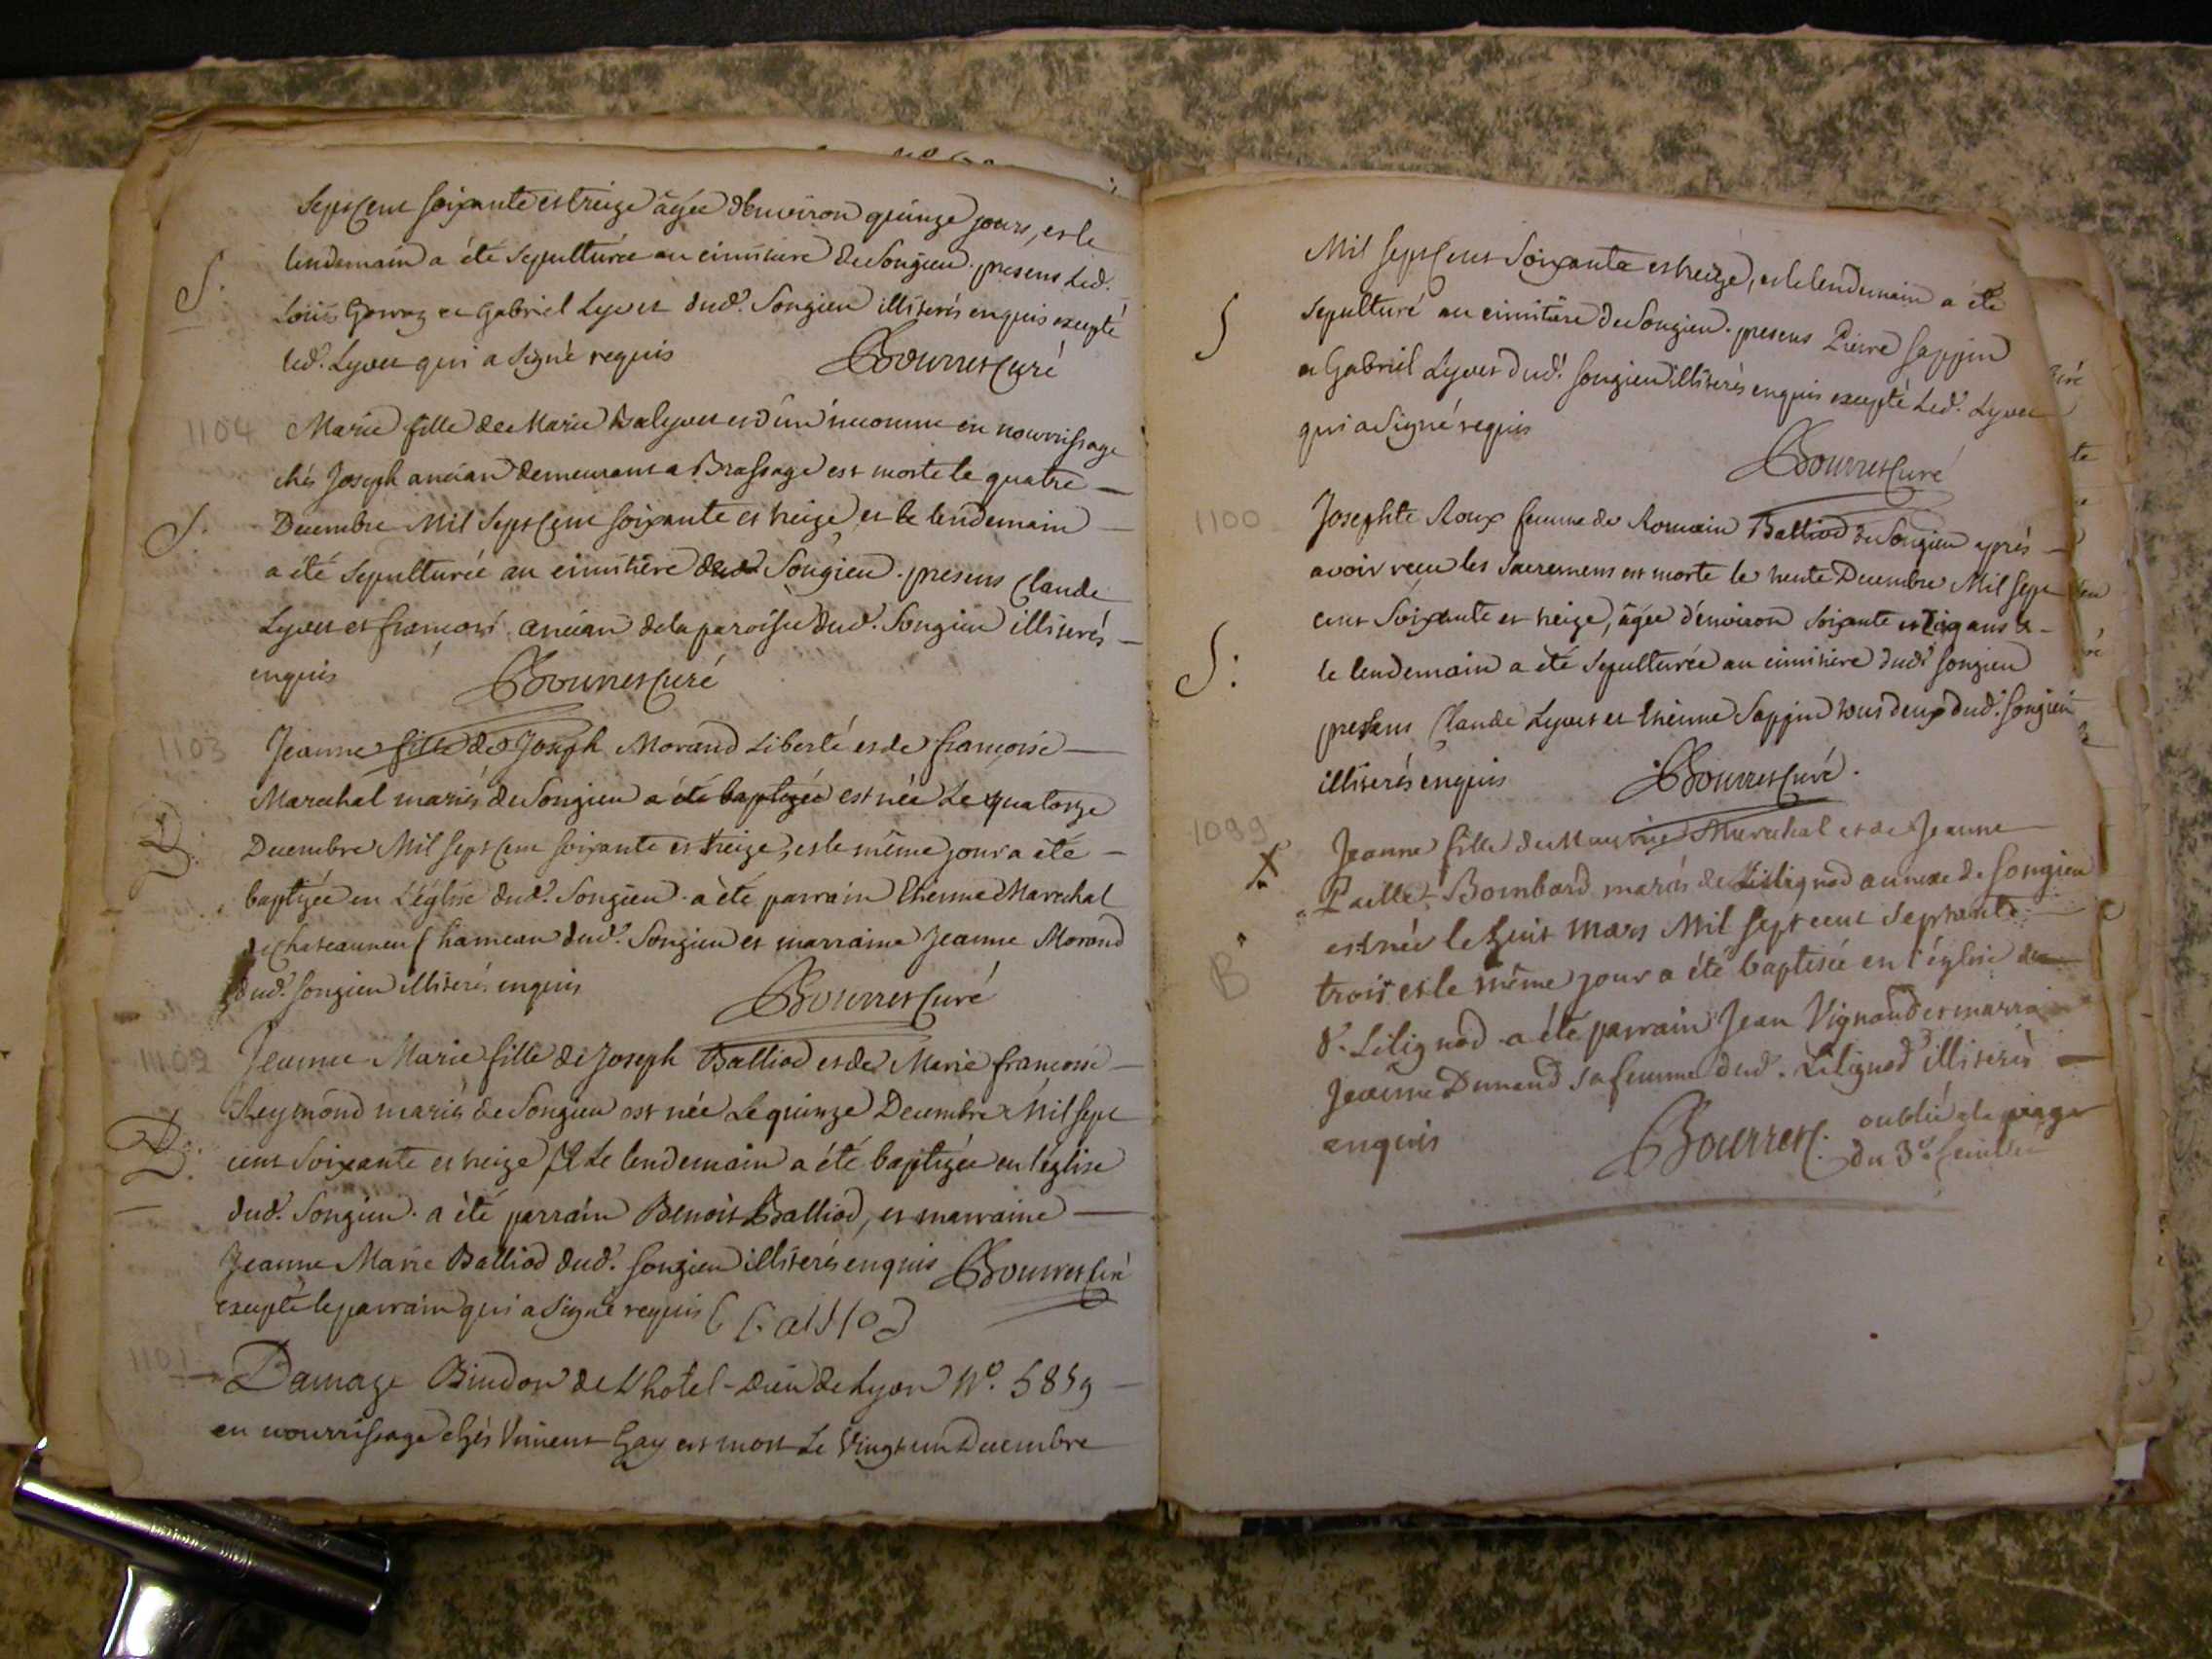 Sept Cent soixante et treize âgée d'environ quinze jours, et le
S.
lendemain a été sepulturée au cimitiere de Songieu. presens Led.
Loüis Gowraz et Gabriel Lyvet dud. Songieu illiterés enquis excepté
led. Lyvet qui a signé requis Bourret Curé
1104
Marie fille de Marie Balyvet et d'un inconnu en nourrissage
chés Joseph ancian demeurant a Brassage est morte le quatre
S.
Decembre Mil Sept Cent soixante et treize et le lendemain
a été sepulturée au cimitière de Songieu. presens Claude
Lyvet et françois ancian de la paroisse dud. Songieu illiterés
enquis Bourret Curé
1103
Jeanne fille de Joseph Morand Liberté et de françoise
Marechal mariés de Songieu a été baptizée est née Le quatorze
B.
Decembre Mil Sept Cent soixante et treize, et le même jour a été
baptizée en L'église dud. Songieu. a été parrain Etienne Marechal
de Chateauneuf hameau dud. Songieu et marraine Jeanne Morand
dud. Songieu illiterés enquis Bourret Curé
1102
Jeanne Marie fille de Joseph Balliod et de Marie françoise
Reymond mariés de Songieu est née Le quinze Decembre Mil Sept
B.
cent Soixante et treize et Le lendemain a été baptizée en l'église
dud. Songieu. a été parrain Benoit Balliod, et marraine
Jeanne Marie Balliod dud. Songieu illiterés enquis Bourret Curé
excepté le parrain qui a signé requis B Balliod
1101
Damaze Bindon de L'hotel-Dieu de Lyon N°. 5859
en nourrissage chés Vincent Gay est mort Le Vingt un Decembre
Mil Sept Cent Soixante et treize, et le lendemain a été
S
sepulturé au cimitière de Songieu. presens Pierre Sappin
et Gabriel Lyvet dud. Songieu illiterés enquis excepté Led. Lyvet
qui a signé requis
Bourret Curé
1100
Josephte Roux femme de Romain Balliod de Songieu après
avoir receu les sacremens est morte le trente Decembre Mil Sept
cent Soixante et treize, âgée d'environ soixante et dix ans et
S:
le lendemain a été sepulturée au cimitière dud. Songieu
presens Claude Lyvet et Etienne Sappin tous deux dud. Songieu
illiterés enquis Bourret Curé.
1099
Jeanne fille de Maurice Marechal et de Jeanne
X
Paillet Bombard mariés de Lilignod annexe de Songieu
est née le huit mars Mil sept cent septante
B
trois et le même jour a été baptisée en l'église du
d. Lilignod a été parrain Jean Vignand et marrai
Jeanne Dunand sa femme dud. Lilignod illiterés
enquis Bourret C. oublié a la page
du 3e feuillet